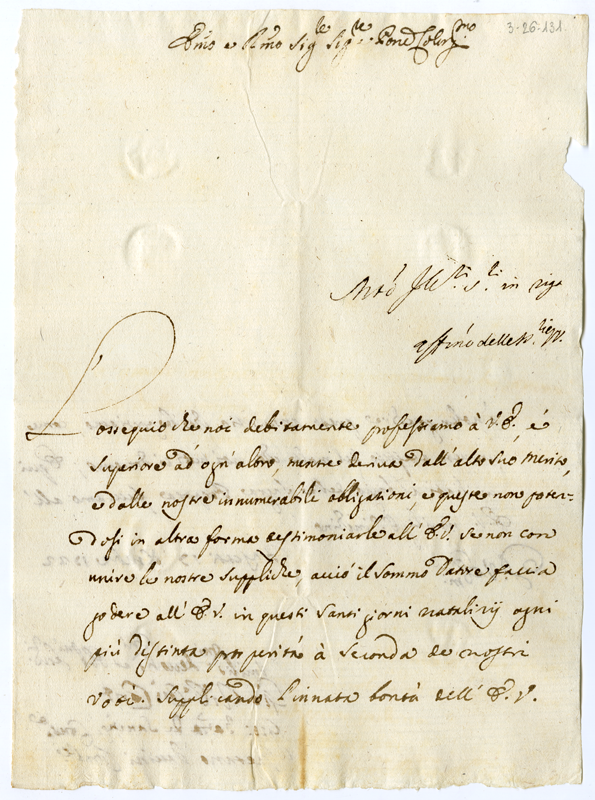 3-26-131.
Emo e Rmo Sig.re Sig.re Pone Col.mo
in
L'ossequio che noi debitamente professiamo à V. E., é
superiore ad ogn'altro, mentre deriva dall'alto suo merito,
e dalle nostre innumerabili obligationi, e queste non poten=
dosi in altra forma testimoniarle all'E. V. se non con
unire le nostre suppliche, acciò il sommo Datre faccia
godere all'E. V. in questi santi giorni natalizij ogni
più distinta prosperità à seconda de nostri
voti. Supplicando l'innata bontà dell'E. V.